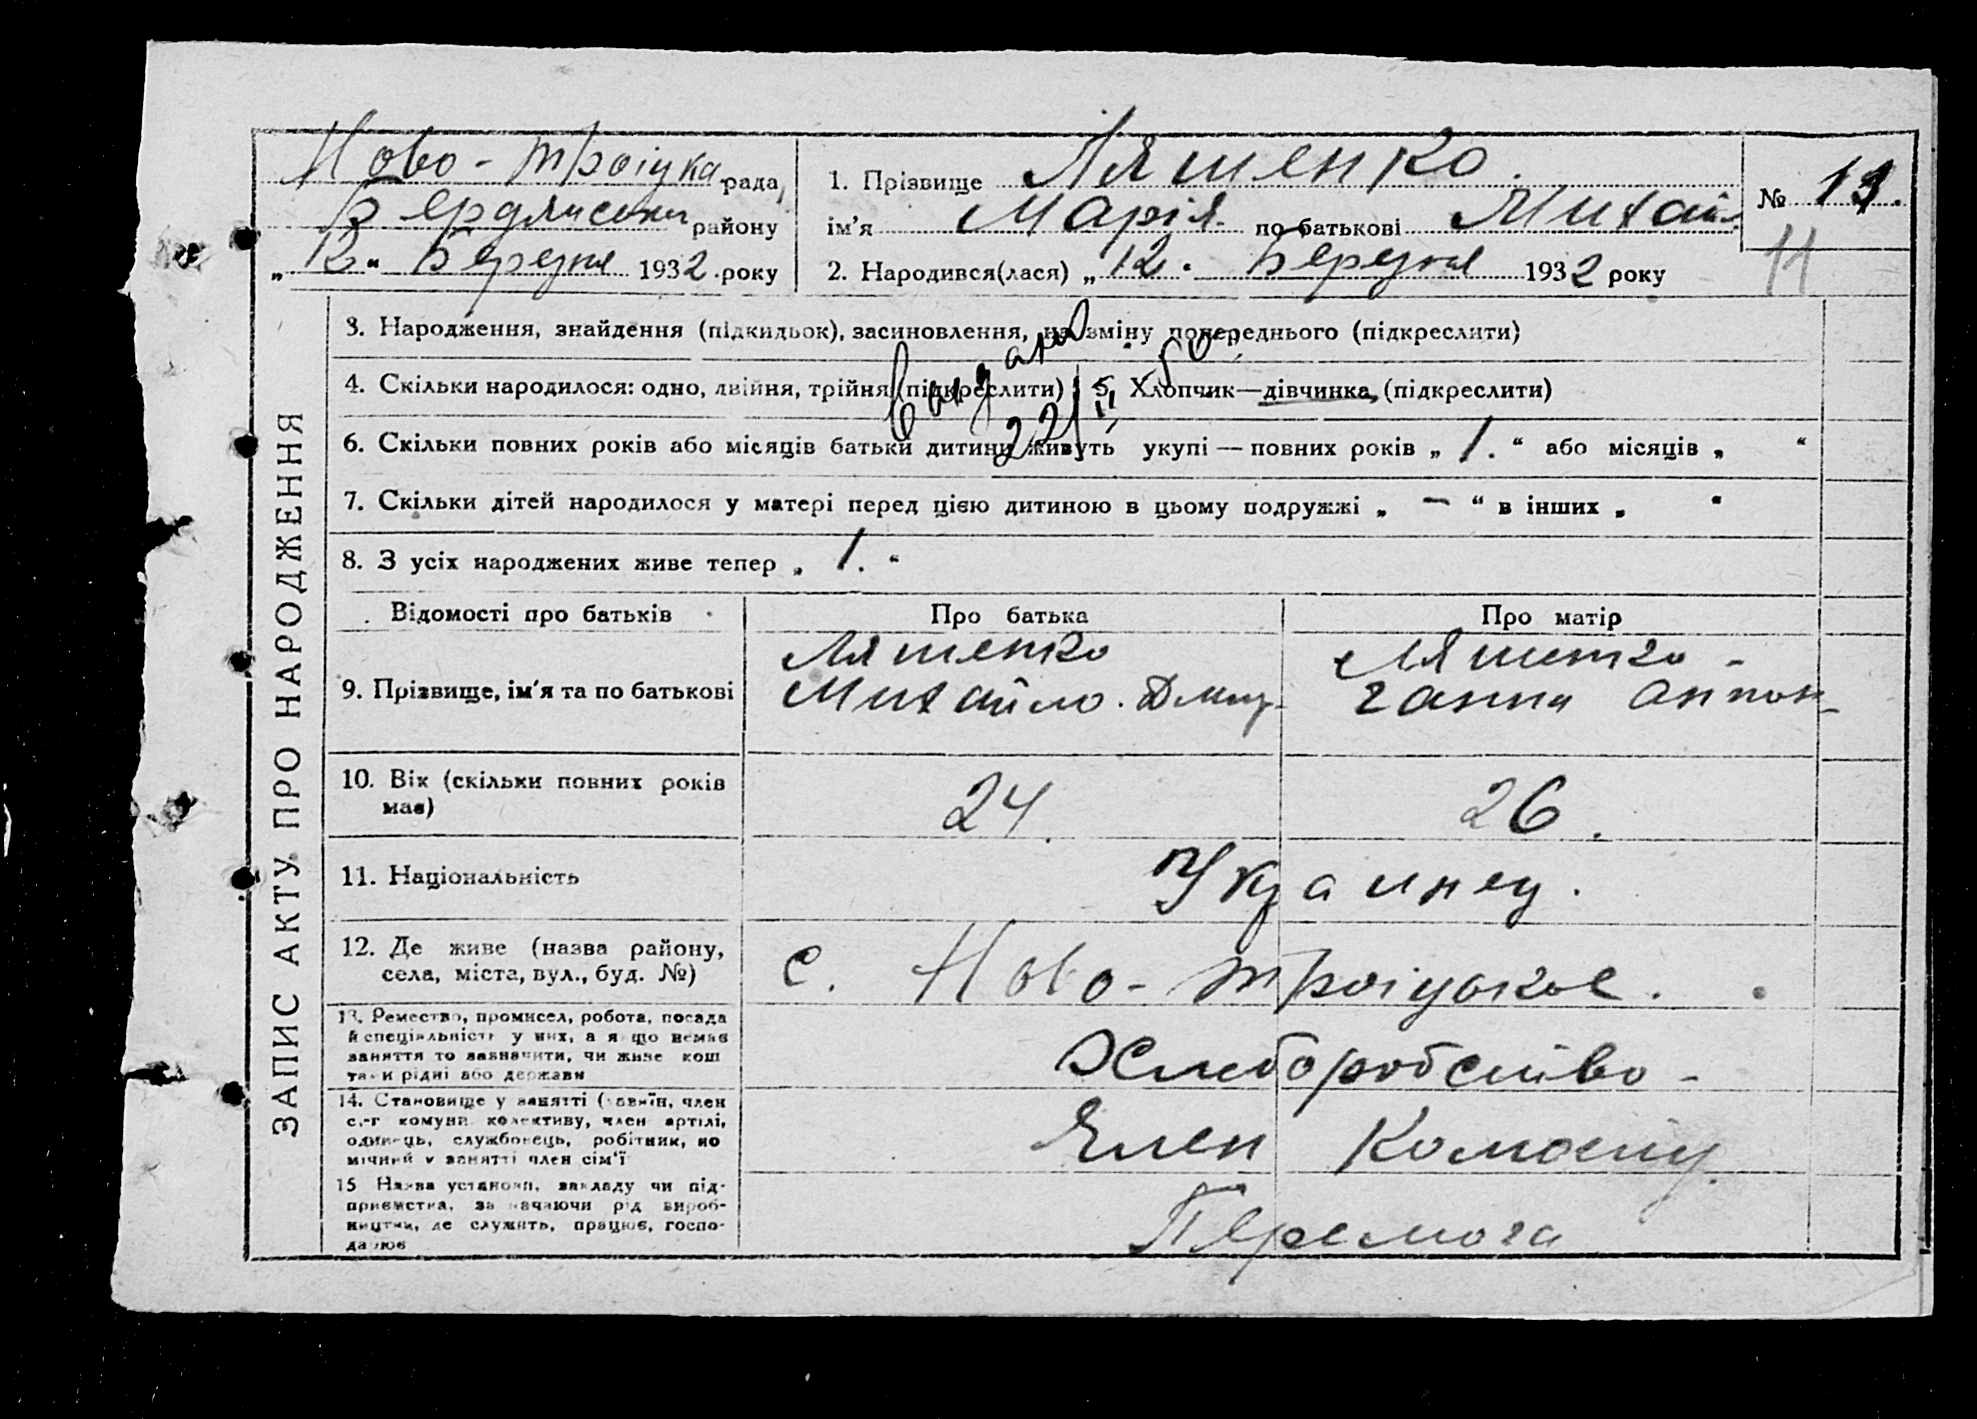 Ново-троіцка рада,
Бердянськ району
„ 12 “ Березня 1932 .року
1. Прізвище Ляшенко.
ім’я Марія. по батькові Михай
2. Народився(лася) „ 12 “ Березня 1932 року
№ 11.
11
ЗАПИС АКТУ ПРО НАРОДЖЕННЯ
3. Народження, знайдення (підкидьок), засиновлення, на зміну попереднього (підкреслити)
4. Скільки народилося: одно, двійня, трійня (підкреслити)
5. Хлопчик—дівчинка, (підкреслити)
6. Скільки повних років або місяців батьки дитини живуть укупі — повних років „ 1. “ або місяців „ “
7. Скільки дітей народилося у матері перед цією дитиною в цьому подружжі „ — “ в інших „ “
8. З усіх народжених живе тепер „ 1. “
Відомості про батьків
Про батька
Про матір
9. Прізвище, ім’я та по батькові
Ляшенко
Михайло. Дмит-
Ляшенко -
Ганна Антон-
10. Вік (скільки повних років
має)
24.
26.
11. Національність
Украинец.
12. Де живе (назва району,
села, міста, вул., буд. №)
с. Ново-троіцькое.
13. Ремество, промисел, робота, посада
й спеціяльність у них, а якщо немає
заняття то зазначити, чи живе кош
там и рідні або держави
Хлеборобство -
14. Становище у занятті (хазяїн, член
с.-г комуни колективу, член артілі,
одинець, службовець, робітник, по
мічний у занятті член сім’ї
Член Колоспу
15 Назва установи, закладу чи під-
приємства, зазначаючи рід вироб-
ництва, де служить, працює, госпо-
дарює
Перемога